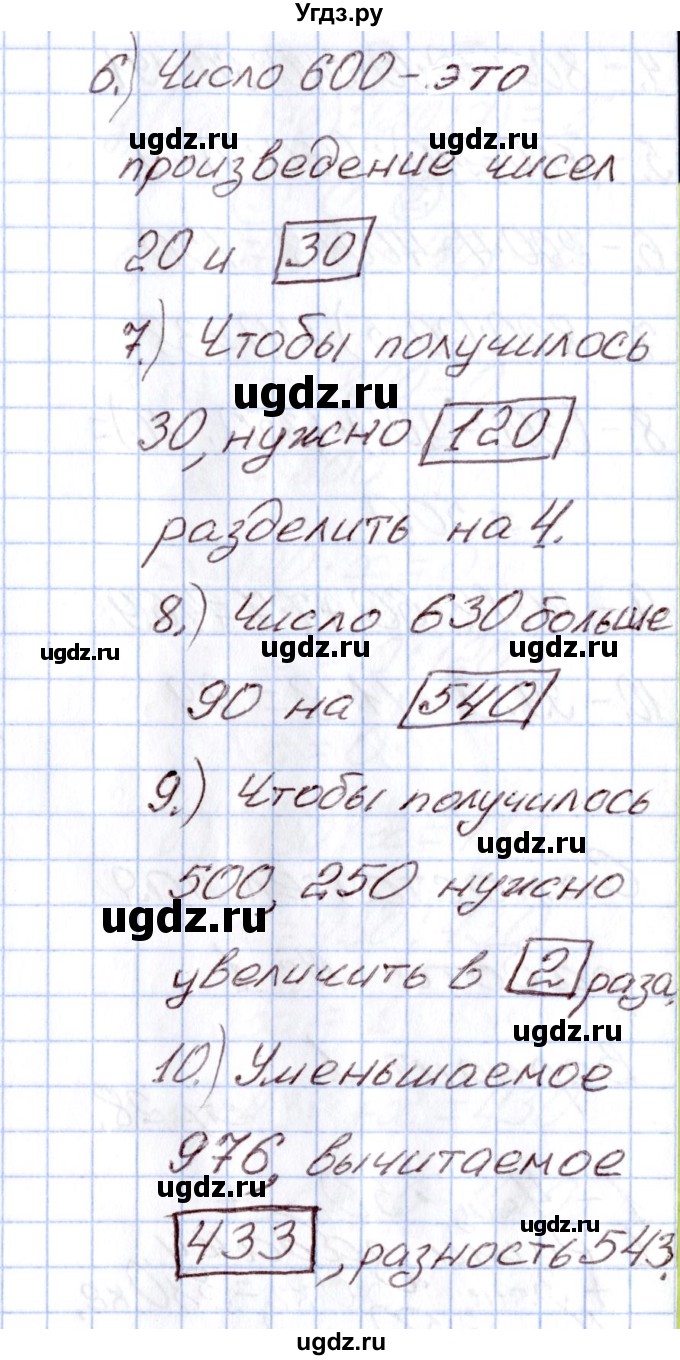 Угдз.ру
6.) Число 600 - это
ugdz.ru ugdz.ru
произведение чисел
20 и 30
7.) Чтобы получилось
ugdz.ru
30, нужно 120
разделить на 4.
8.) Число 630 больше
ugdz.ru ugdz.ru ugdz.ru
90 на 540
9.) Чтобы получилось
ugdz.ru
500, 250 нужно
ugdz.ru
увеличить в 2 раза.
ugdz.ru
10.) Уменьшаемое
976, вычитаемое
ugdz.ru
ugdz.ru
433, разность 543.
ugdz.ru